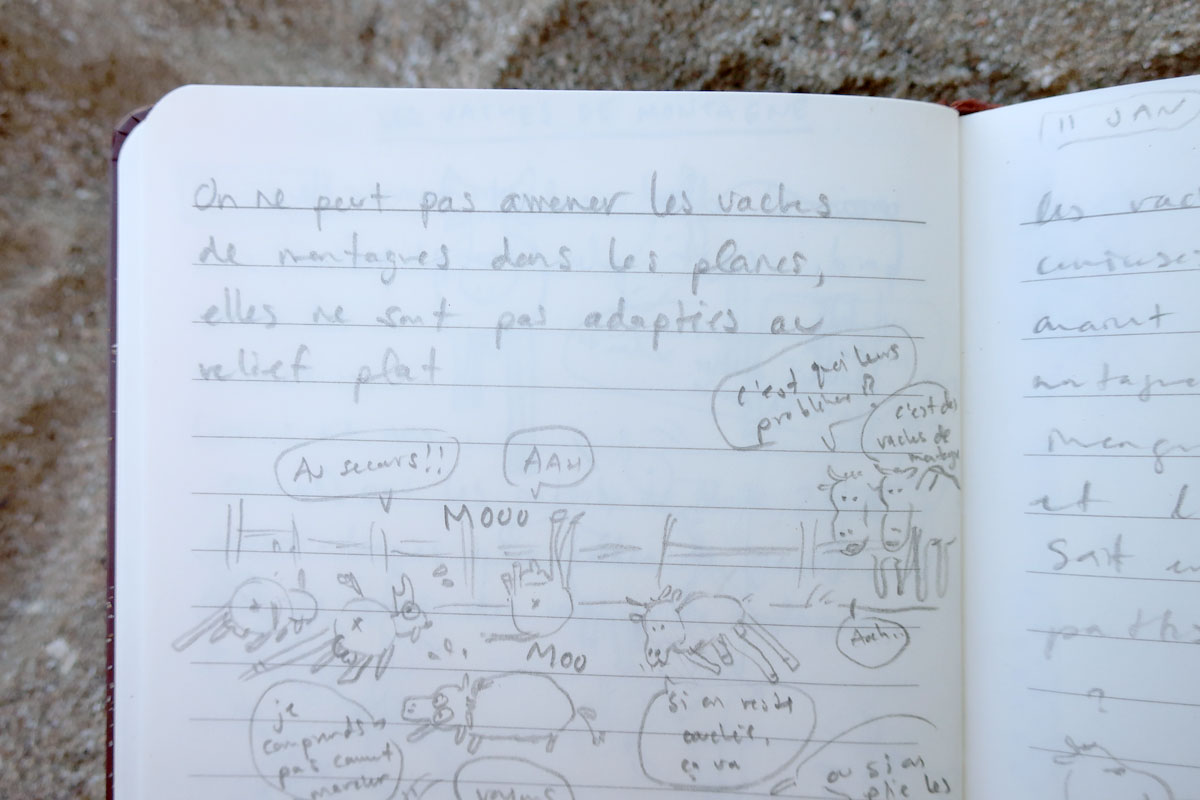 On ne peut pas amener les vaches
de montagnes dans les planes,
elles ne sont pas adaptées au
relief plat
c'est quoi leurs
problème ??
c'est des
vaches de
montagne
Au secours!!
AAH
MOOO
MOO
Aah..
je
comprends
pas comment
marcher
si on reste
couchée,
ça va
voyons
ou si on
plie les
11 JAN
les vac
avant
et l
Sait en
?